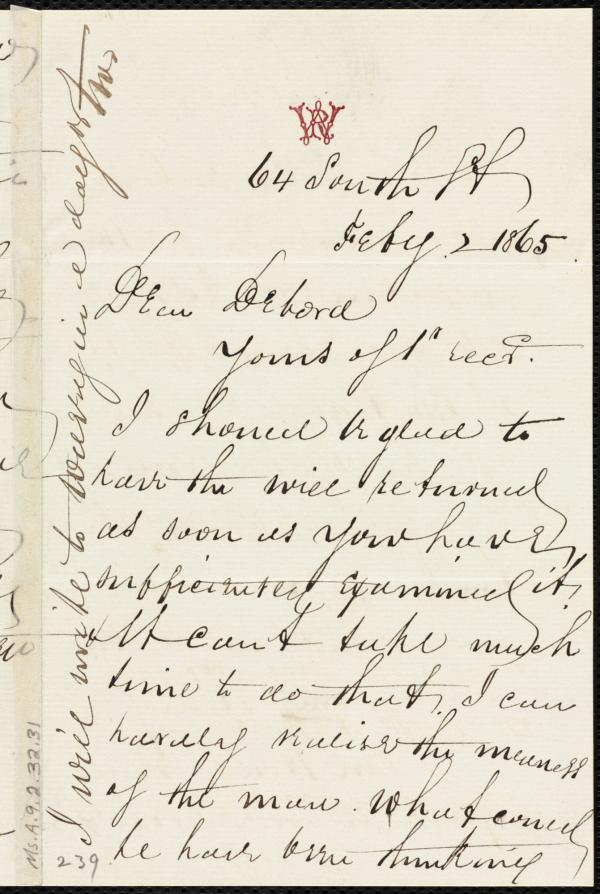 64 South St
Feby. 2 1865.
Dear Debora
Yours of 1st recd.
I should be glad to
have the will returned
as soon as you have
sufficiently examined it.
It can't take much
time to do that. I can
hardly realise the meaness
of the man. What could
he have been thinking
I will write to in a day or two
Ms.A.9.2.32.31
239